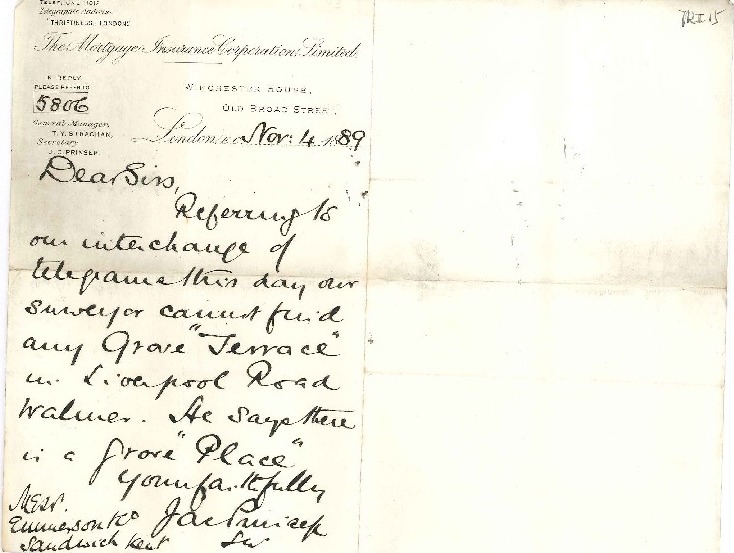 TELEPHONE 1012
Telegraphic Address
"THRIFTINESS, LONDON"
The Mortgage Insurance Corporation, Limited.
TRII 15
IN REPLY
PLEASE REFER TO
5806
WINCHESTER HOUSE,
OLD BROAD STREET,
General Manager,
T. Y. STRACHAN,
Secretary
J. C. PRINSEP.
London, E.C. Nov: 4 1889
Dear Sirs,
Referring to
our interchange of
telegrams this day our
surveyor cannot find
any Grove "Terrace"
in Liverpool Road
Walmer. He says there
is a Grove "Place"
Yours faithfully
Jas Prinsep
Sec
Messr.
Emmerson & Co
Sandwich Kent